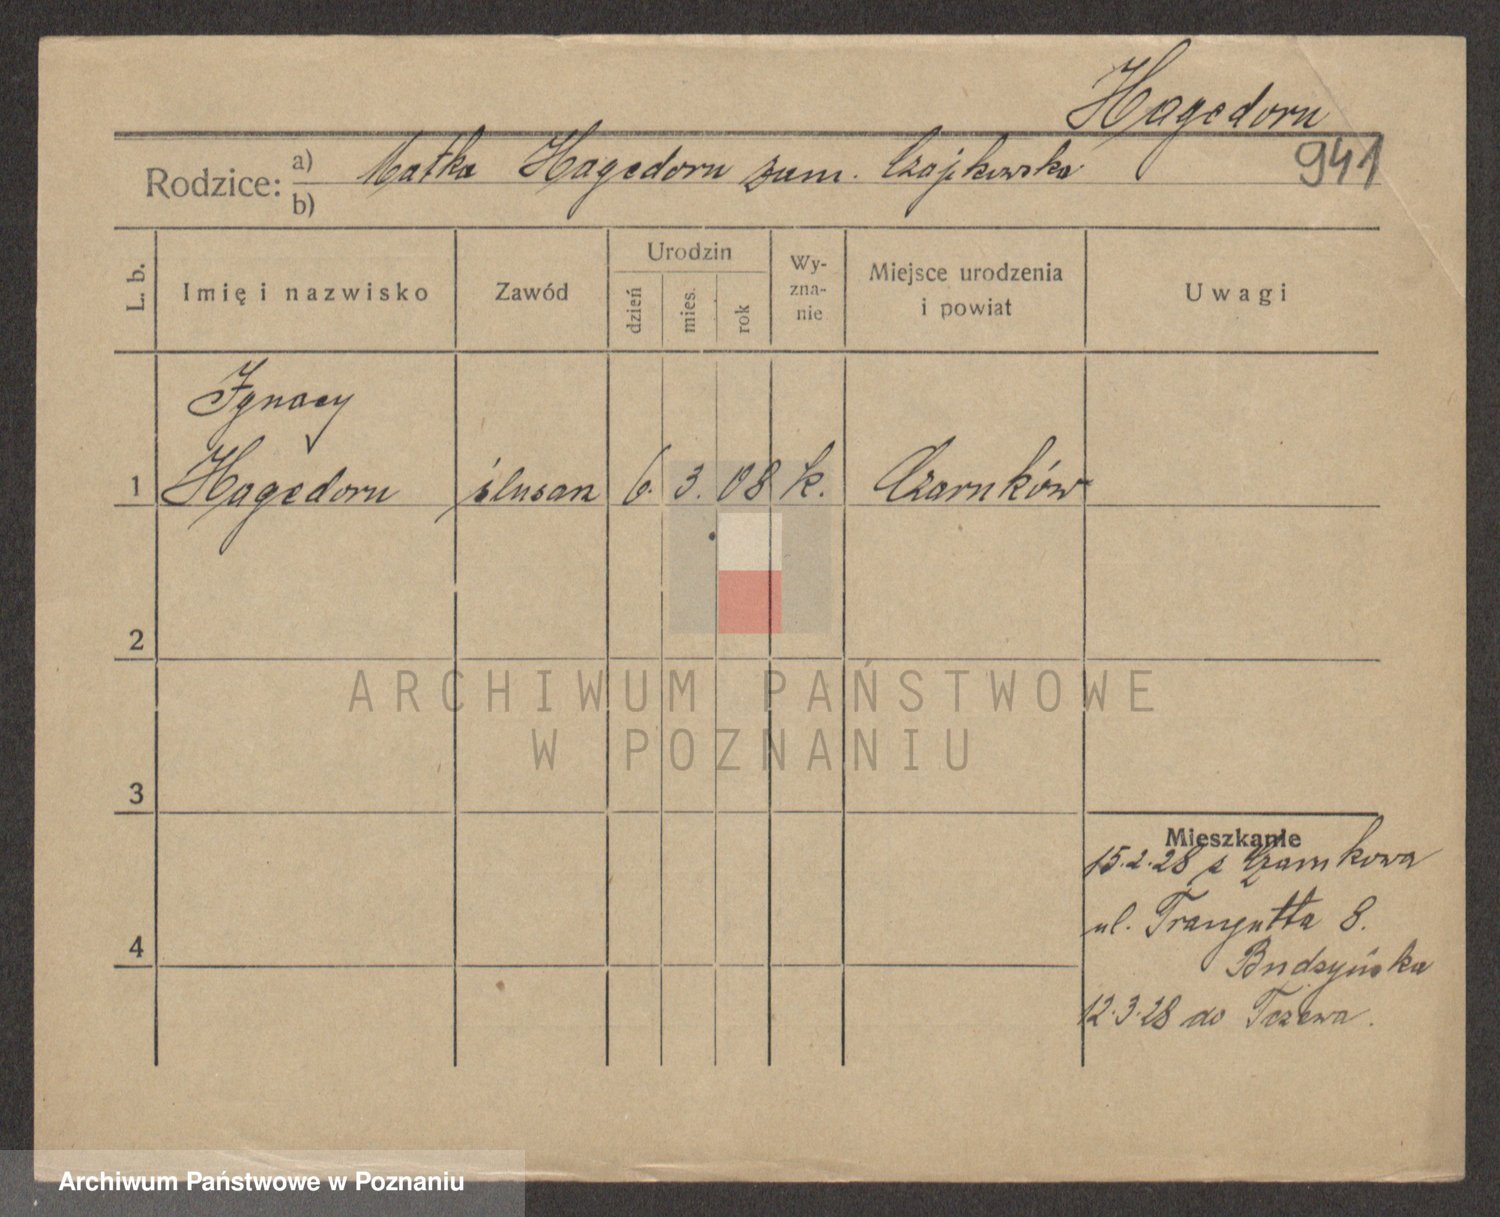 Hagedorn
Rodzice: a) Matka Hagedorn zam. Czajkowska 941
b)
L. b. Imię i nazwisko Zawód Urodzin dzień mies. rok Wy-zna-nie Miejsce urodzenia i powiat Uwagi
Ignacy
1 Hagedorn ślusarz 6. 3. 08 k. Czarnków
2
ARCHIWUM PAŃSTWOWE
W POZNANIU
3
Mieszkanie
15.2.28 z Czarnkowa
ul. Traugutta 8.
4
Budzyńska
12.3.28 do Tczewa.
Archiwum Państwowe w Poznaniu